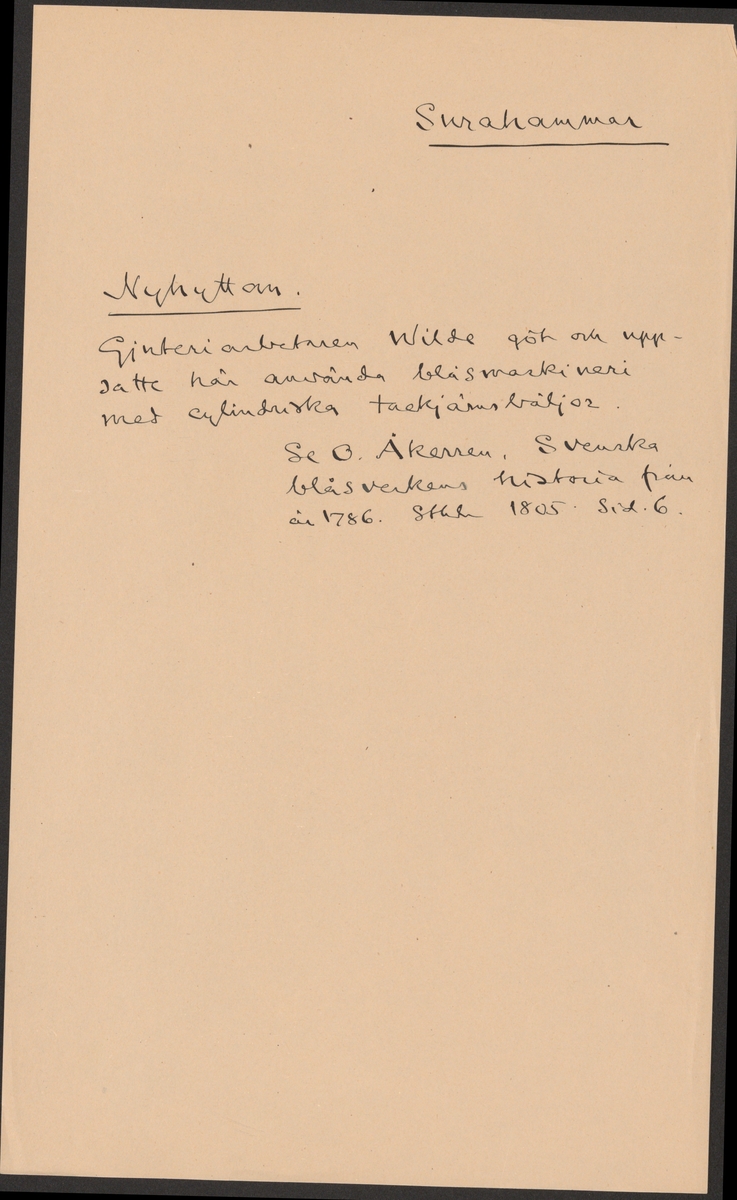 Surahammar
Nyhyttan.
Gjuteriarbetaren Wilde göt och upp-
satte här använda blåsmaskineri
med cylindriska tackjärnsbäljor.
Se O. Åkerren, Svenska
blåsverkens historia från
år 1786. Sthlm 1805. Sid. 6.